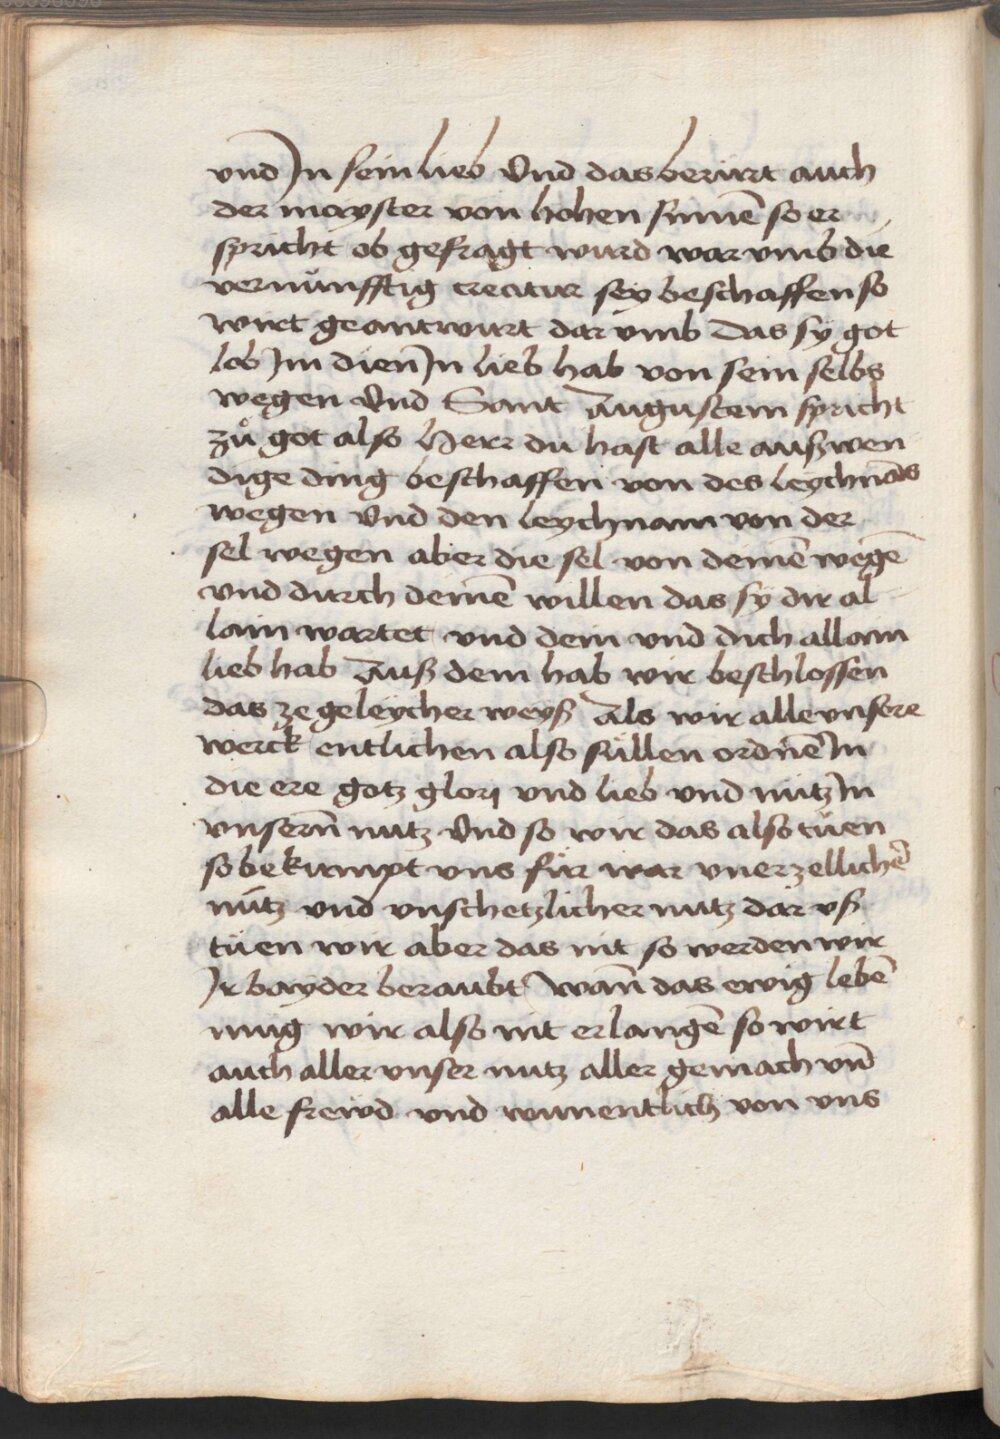 vnd In sein lieb Vnd das berürt auch
der mayster von hohen sinnē so er
spricht ob gefragt wurd war vmb die
vernünfftig creatur sey beschaffen so
wirt geantwurt dar vmb das sy got
lob Im dien In lieb hab von sein selbs
wegen Vnd Sant Augustein spricht
zů got also Herr du hast alle außwen
dige ding beschaffen von des leychnās
wegen Vnd den leychnam von der
sel wegen aber die sel von deinē wegē
vnd durch deinē willen das sy dir al
lain wartet vnd dein vnd dich allain
lieb hab Auß dem hab wir beschlossen
das ze geleycher weyß Als wir alle vnsere
werck entlichen also süllen ordnē In
die ere gotz glorj vnd lieb vnd nutz In
vnsern̄ nutz Vnd so wir das also tüen
so bekumpt vns für war vnerzellichē
nutz vnd vnschetzlicher nutz dar vß
tüen wir aber das nit so werden wir
Ir bayder beraubt wan̄ das ewig lebē
mug wir also nit erlangē so wirt
auch aller vnser nutz aller gemach vn̄
alle frewd vnd wunentlich von vns